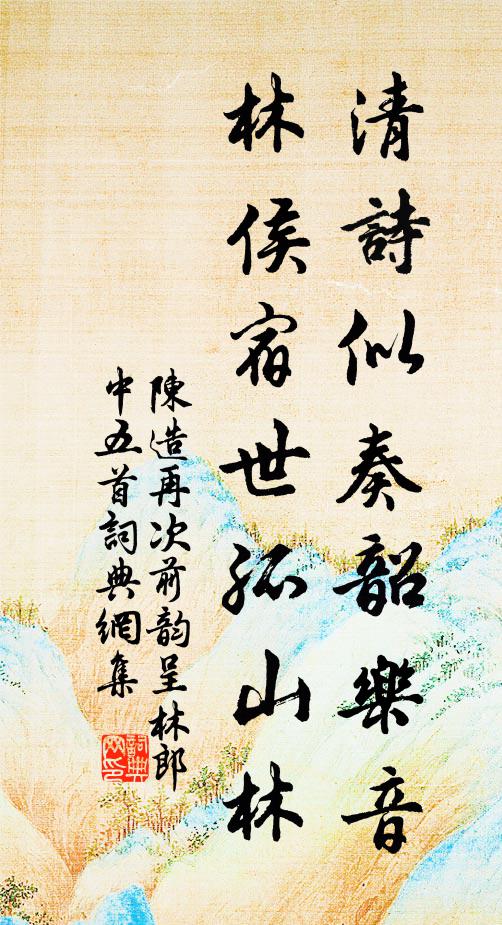 清詩似奏韶樂音
林侯宿世孤山林
陳造再次前韵呈林郎
中五首詞典網集
詞典
网印